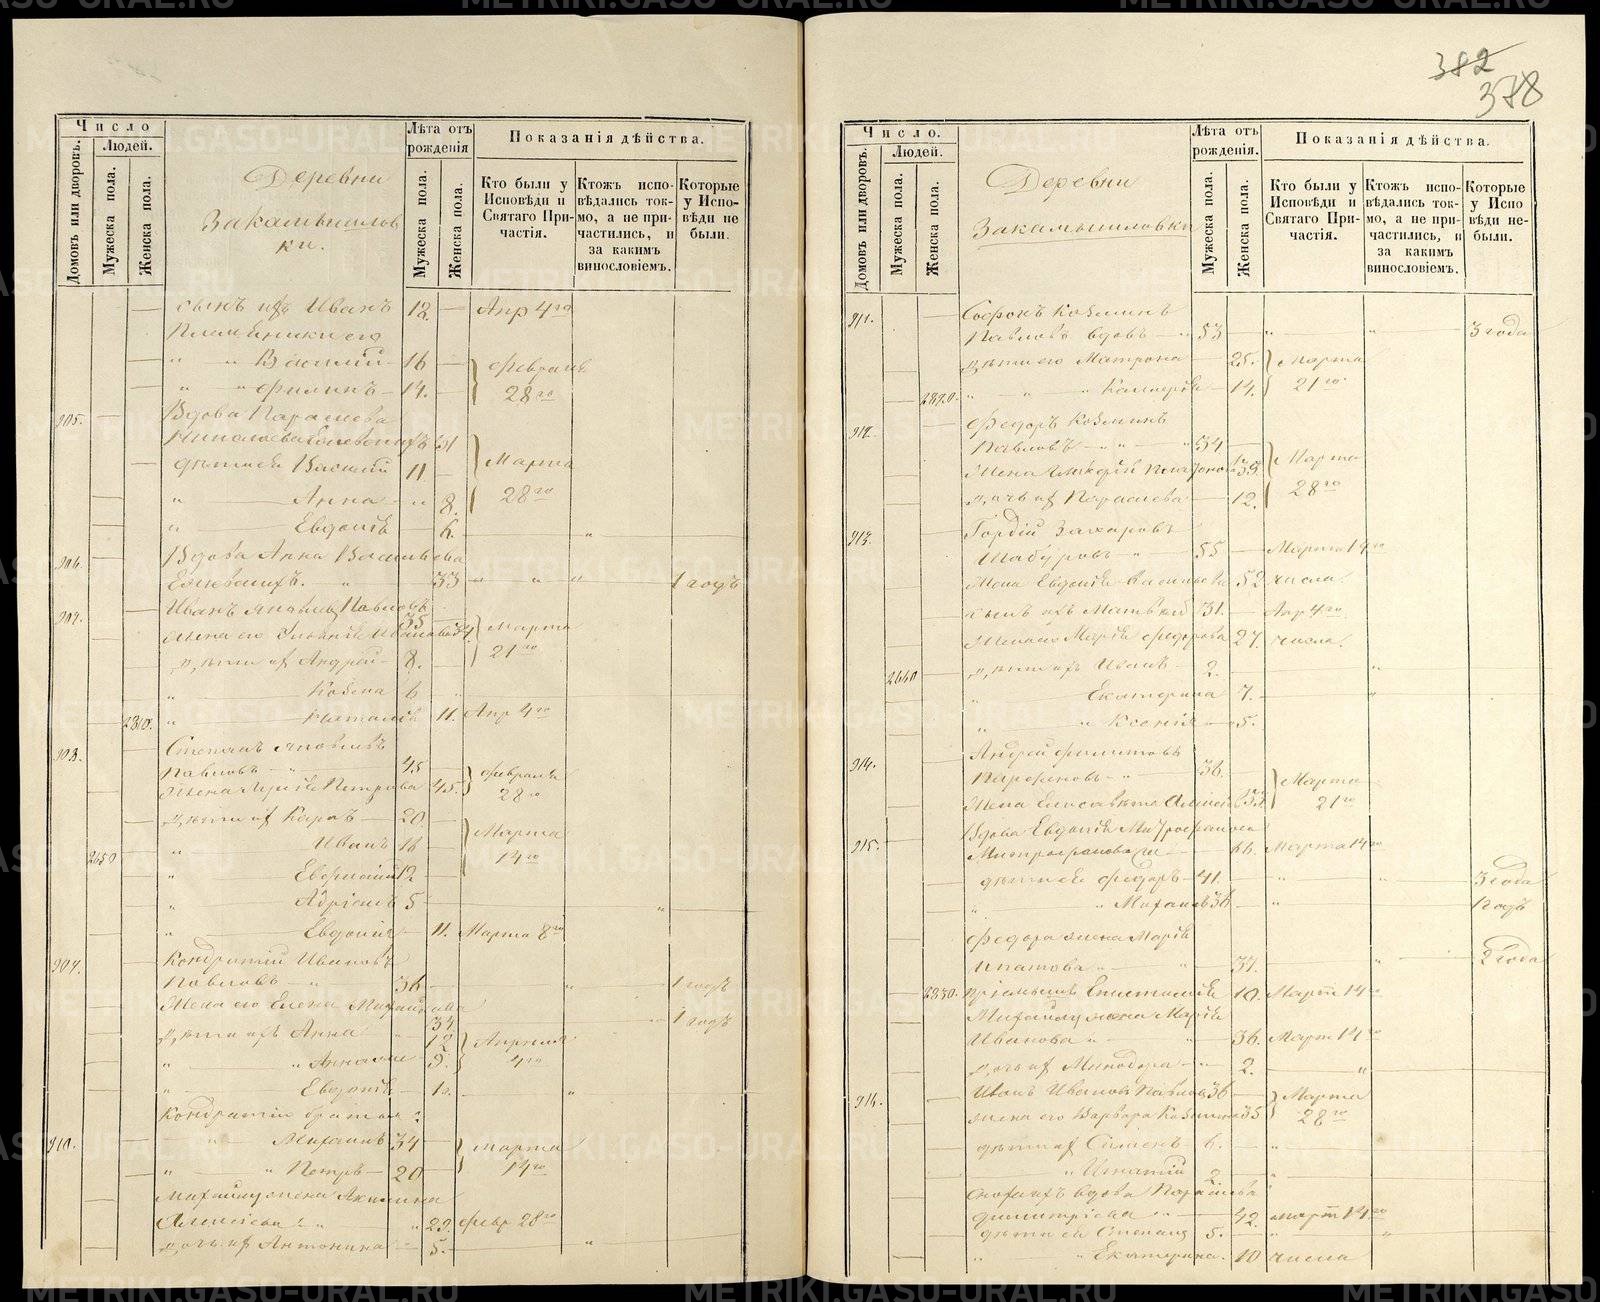 382
378
Число
Людей.
Домовъ или дворовъ.
Мужеска пола.
Женска пола.
Деревни
Закамышлов
ки.
Лѣта отъ
рожденія
Мужеска пола.
Женска пола.
Показанія дѣйства.
Кто были у
Исповѣди и
Святаго При-
частія.
Ктожъ испо-
вѣдались ток-
мо, а не при-
частились, и
за какимъ
винословіемъ.
Которые
у Испо-
вѣди не
были.
сынъ ихъ Иванъ 12 Апр 4го
Племянники его
" " Василий 16 Февраля
" " Филипъ 14. 28го
905. Вдова Парасева
31
Василий 11 Марта
" Анна " 8. 28го
" Евдокія 6. "
906. Вдова Анна Васильева
" 33 " " " 1 годъ
907. Иванъ Яковлевъ Павловъ 35
жена его Ивановa 34. Марта
дѣти их Андрей 8. 21го
" Козма 6 "
2810. " Наталія 11. Апр 4го
908. Степанъ Яковлевъ
Павловъ " 45 Февраля
жена Петрова 45. 28го
дѣти их Карпъ 20
" Иванъ 16 Марта
2650 " Евфимій 12 14го
" Адріанъ 5 "
" Евдокія 11. Марта 8го
909. Кондратій Ивановъ
Павловъ " 36 " 1 годъ
жена его Елена Михайлова
34 1 годъ
дѣти ихъ Анна 12 Апреля
" Анна 9. 4го
" Евдокія 1. "
Кондратія братья:
910. " Михаилъ 34 Марта
" " Петръ 20 14го
Михайлу жена Акилина
Алексіева " 29. Февр 28го
дочь их Антонина 5. "
Число.
Людей.
Домовъ или дворовъ.
Мужеска пола.
Женска пола.
Деревни
Закамышловки
Лѣта отъ
рожденія.
Мужеска пола.
Женска пола.
Показанія дѣйства.
Кто были у
Исповѣди и
Святаго При-
частія.
Ктожъ испо-
вѣдались ток-
мо, а не при-
частились, и
за какимъ
винословіемъ.
Которые
у Испо
вѣди не-
были.
911. Софонъ Козминъ
Павловъ вдовъ " 53 " " 3 года
дѣти его Матрона 25. Марта
2820. " " 14. 21го
912. Федоръ Козминъ
Павловъ " " 34
жена 35. Марта
дочь их Парасева 12. 28го
913. Гордій Захаровъ
Шабуровъ " 55 Марта 14го
жена Евдокія Васильева 52 числа
сынъ ихъ Матвѣй 31. Апр 4го
жена его Марія Федорова 27. числа
2660 дѣти ихъ Иванъ 2. "
" Екатерина 7. "
" Ксенія 5.
914. Андрей Филиповъ
Парфеновъ " 36. Марта
жена Елисавета 21го
915. Вдова Евдокія Митрофанова
Митрофановa 66. Марта 14го
дѣти ея Федоръ 41. " " 3 года
" " Михаилъ 36 " 1 годъ
Федора жена Марія
Ипатова " " 37. " 2 года
2830. 10. Март 14го
Михайлу жена Марія
Иванова " 36. Март 14го
дочь их Минодора " 2. "
916. Иванъ Ивановъ Павловъ 36 Марта
жена его Варвара Козмина 35 28го
дѣти их Симеонъ 6. "
" Игнатій 2 "
Сноха ихъ вдова Парасева
Димитріева " 42. март 14го
дѣти ея Степанъ 5. " "
" " Екатерина. 10 числа
METRIKI.GASO-URAL.RU